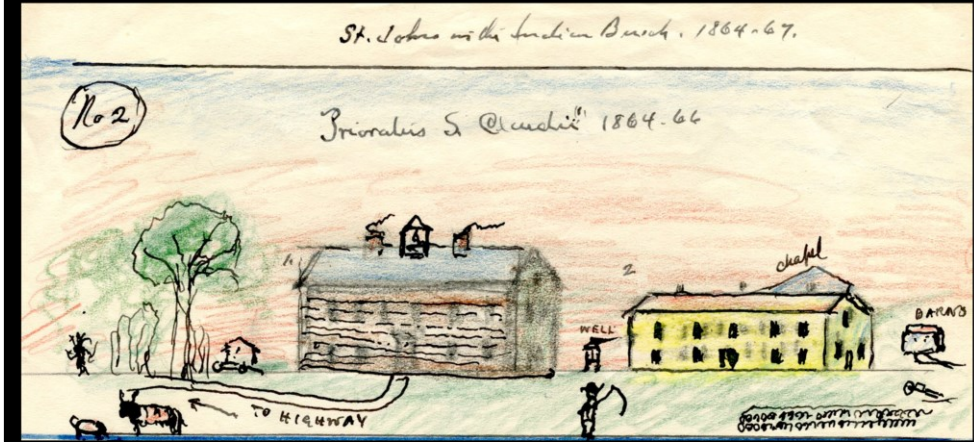 St. Johns in the Indian Bush. 1864-67.
No 2
Prioratus S. Claudii 1864-66
1
2
chapel
WELL
BARNS
TO HIGHWAY